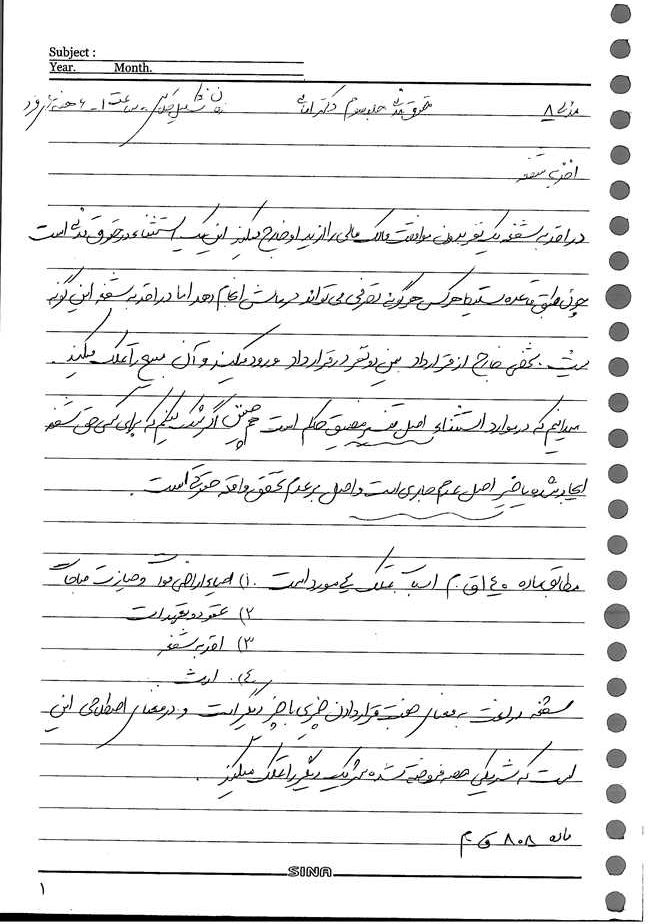 Subject :
Year. Month.
مدنی ۸ حقوق مدنی جلسه سوم دکتر امامی
اخذ به شفعه
در اخذ به شفعه یک نفر بدون موافقت مالک مالی را از ید او خارج میکند این یک استثناء در حقوق مدنی است
چون طبق قاعده تسلیط هر کس هر گونه تصرفی می تواند در مالش انجام دهد اما در اخذ به شفعه این گونه
نیست. شخصی خارج از قرارداد بین دو نفر در قرارداد ورود میکند و آن مبیع را تملک میکند.
میدانیم که در موارد استثناء اصل تفسیر مضیق حاکم است همچنین اگر شک بکنیم که برای کسی حق شفعه
ایجاد شده یا خیر اصل عدم جاری است و اصل بر عدم تحقق واقعه حقوقی است.
مطابق ماده ۱۴۰ ق.م اسباب تملک ۴ مورد است. ۱) احیاء اراضی موات و حیازت مباحات
۲) عقود و تعهدات
۳) اخذ به شفعه
۴) ارث
شفعه در لغت به معنای جفت قراردادن چیزی با چیز دیگر است و در معنای اصطلاحی این
است که شریکی حصه فروخته شده شریک دیگر را تملک میکند.
ماده ۸۰۸ ق م
SINA
۱